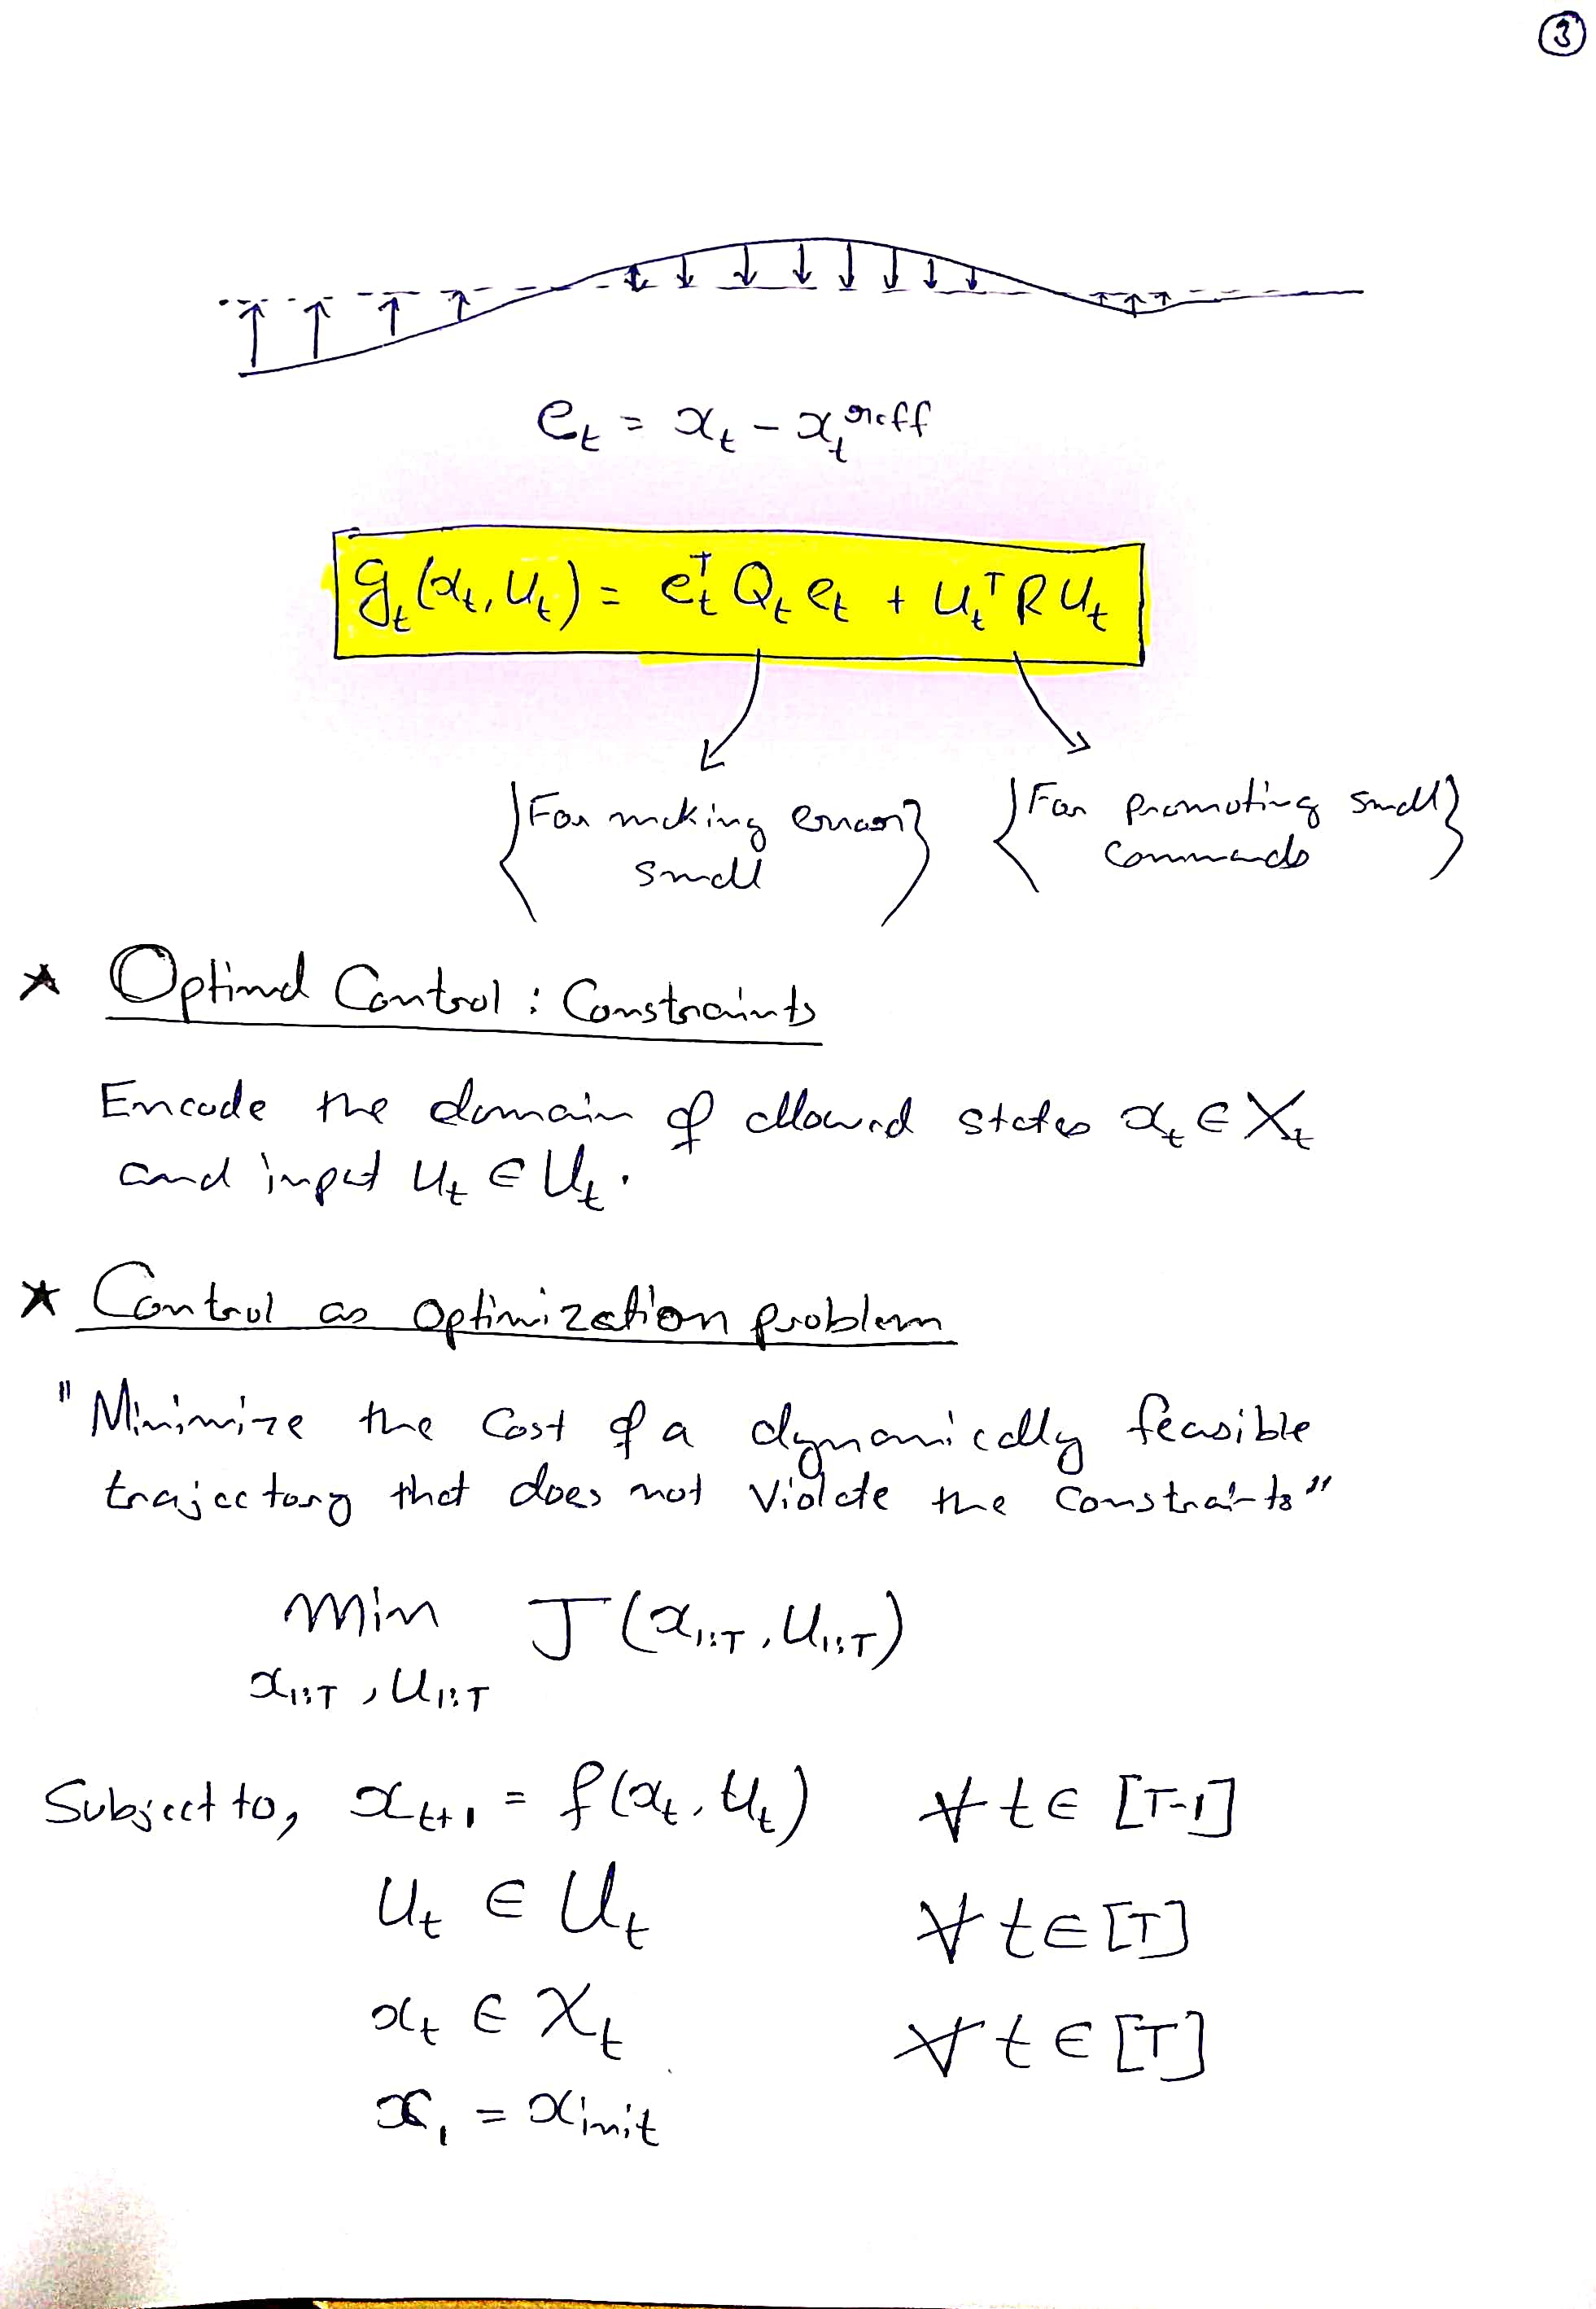 3
e_t = x_t - x_t^reff
g_t(x_t, u_t) = e_t^T Q_t e_t + u_t^T R u_t
{For making error small}
{For promoting small commands}
* Optimal Control : Constraints
Encode the domain of allowed states x_t ∈ X_t
and input u_t ∈ U_t.
* Control as Optimization problem
"Minimize the cost of a dynamically feasible
trajectory that does not violate the constraints"
min J(x_1:T, u_1:T)
x_1:T, u_1:T
Subject to, x_t+1 = f(x_t, u_t) ∀ t ∈ [T-1]
u_t ∈ U_t ∀ t ∈ [T]
x_t ∈ X_t ∀ t ∈ [T]
x_1 = x_init